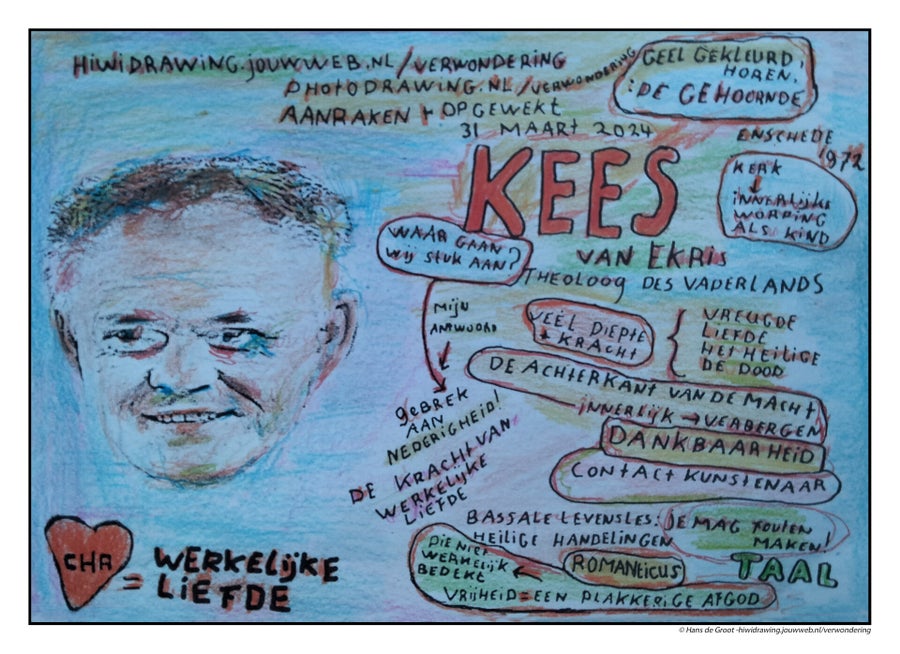 HIWIDRAWING.JOUWWEB.NL/VERWONDERING
PHOTODRAWING.NL/VERWONDERING
AANRAKEN + OPGEWEKT
31 MAART 2024
GEEL GEKLEURD,
HOREN,
: DE GEHOORNDE
ENSCHEDE
1972
KERK
INNERLIJKE
WORPING
ALS KIND
KEES
VAN EKRIS
THEOLOOG DES VADERLANDS
WAAR GAAN
WIJ STUK AAN?
MIJN
ANTWOORD
GEBREK
AAN
NEDERIGHEID!
DE KRACHT VAN
WERKELIJKE
LIEFDE
VEEL DIEPTE
+ KRACHT
VREUGDE
LIEFDE
HET HEILIGE
DE DOOD
DE ACHTERKANT VAN DE MACHT
INNERLIJK → VERBERGEN
DANKBAARHEID
CONTACT KUNSTENAAR
BASSALE LEVENSLES: JE MAG FOUTEN
MAKEN!
HEILIGE HANDELINGEN
DIE NIET
WERKELIJK
BEDEKT
ROMANTICUS
TAAL
VRIJHEID = EEN PLAKKERIGE AFGOD
CHR
= WERKELIJKE
LIEFDE
© Hans de Groot -hiwidrawing.jouwweb.nl/verwondering